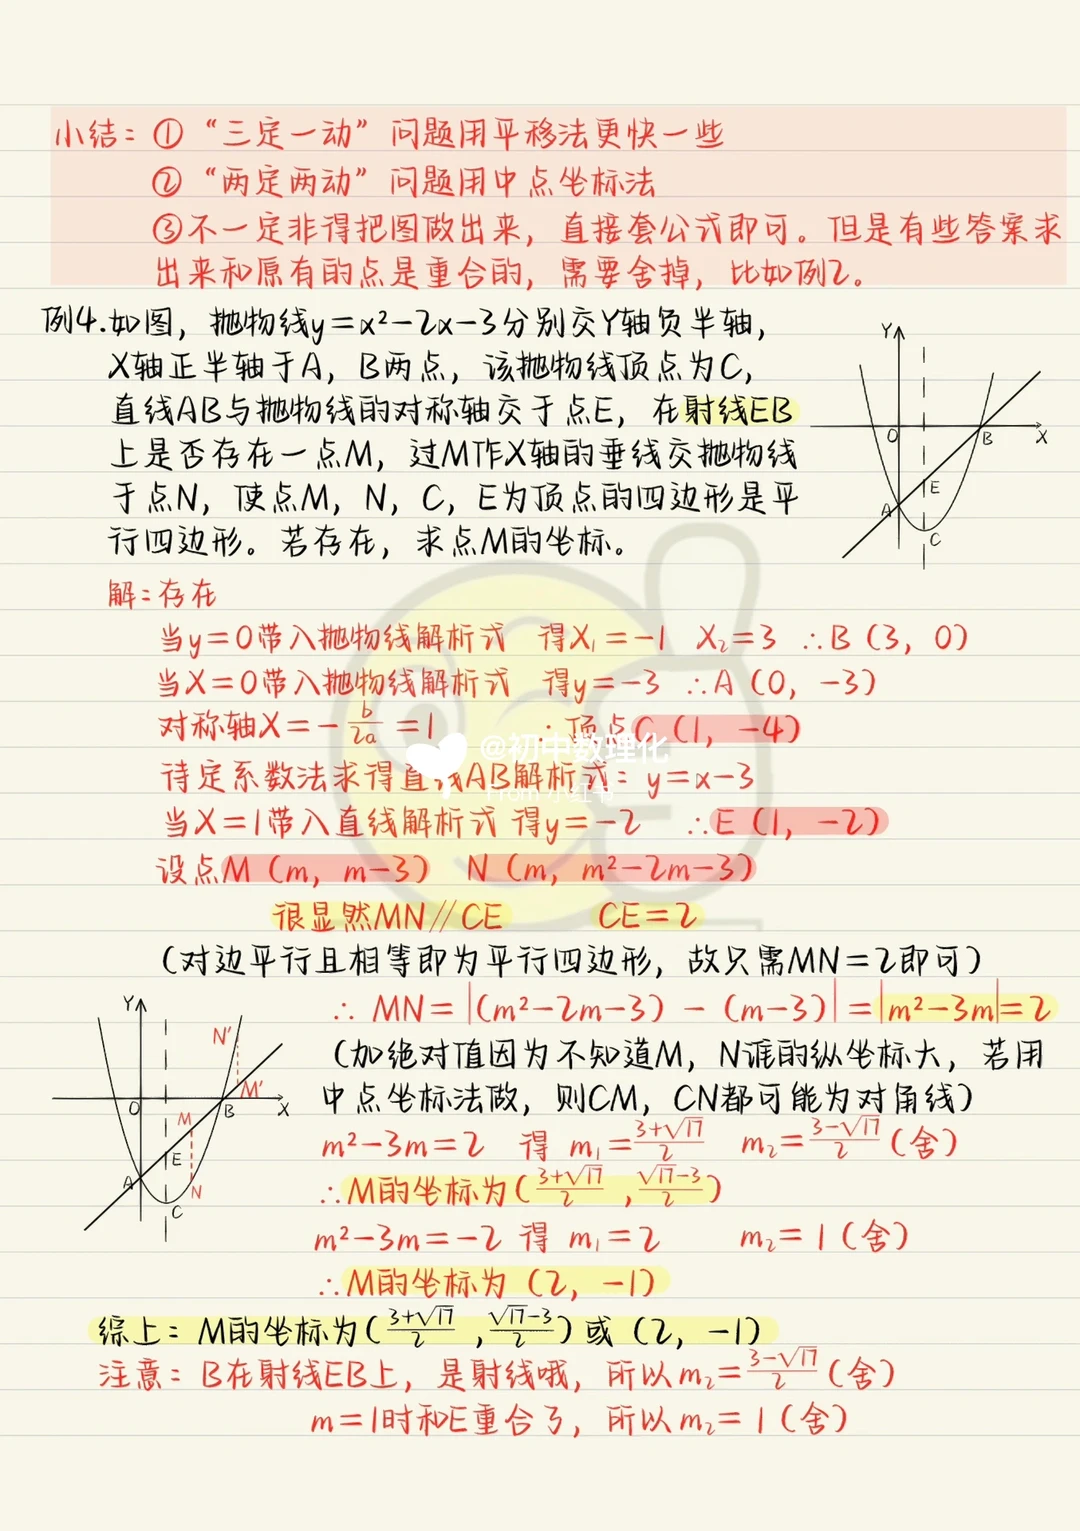 小结：① “三定一动”问题用平移法更快一些
② “两定两动”问题用中点坐标法
③不一定非得把图做出来，直接套公式即可。但是有些答案求
出来和原有的点是重合的，需要舍掉，比如例2。
例4.如图，抛物线y=x²-2x-3分别交Y轴负半轴，
X轴正半轴于A，B两点，该抛物线顶点为C，
直线AB与抛物线的对称轴交于点E，在射线EB
上是否存在一点M，过M作X轴的垂线交抛物线
于点N，使点M，N，C，E为顶点的四边形是平
行四边形。若存在，求点M的坐标。
Y
O
B
X
E
A
C
解：存在
当y=0带入抛物线解析式 得X₁=-1 X₂=3 ∴B（3，0）
当X=0带入抛物线解析式 得y=-3 ∴A（0，-3）
对称轴X=-b/2a=1 ∴顶点C（1，-4）
@初中数理化
待定系数法求得直线AB解析式：y=x-3
From 小红书
当X=1带入直线解析式 得y=-2 ∴E（1，-2）
设点M（m，m-3） N（m，m²-2m-3）
很显然MN∥CE CE=2
（对边平行且相等即为平行四边形，故只需MN=2即可）
∴ MN=|（m²-2m-3）-（m-3）|=|m²-3m|=2
（加绝对值因为不知道M，N谁的纵坐标大，若用
中点坐标法做，则CM，CN都可能为对角线）
Y
N′
M′
O
B
X
M
E
A
N
C
m²-3m=2 得 m₁=3+√17/2 m₂=3-√17/2（舍）
∴M的坐标为（3+√17/2，√17-3/2）
m²-3m=-2 得 m₁=2 m₂=1（舍）
∴M的坐标为（2，-1）
综上：M的坐标为（3+√17/2，√17-3/2）或（2，-1）
注意：B在射线EB上，是射线哦，所以m₂=3-√17/2（舍）
m=1时和E重合了，所以m₂=1（舍）